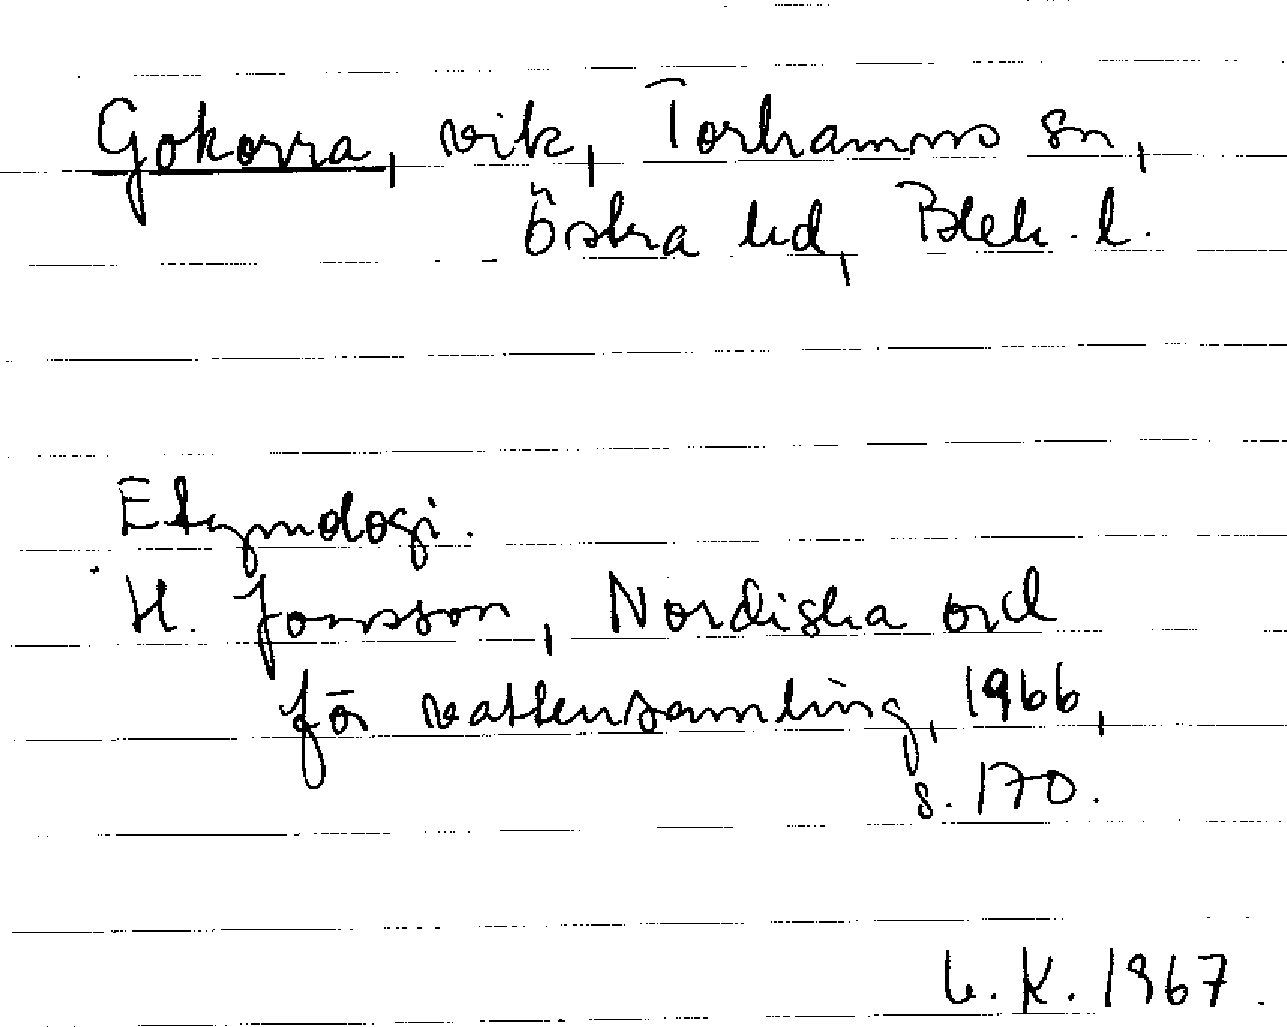 Gokorra, vik, Torhamns sn,
Östra hd, Blek. l.
Etymologi.
H. Jonsson, Nordiska ord
för vattensamling, 1966,
s. 170.
L. K. 1967.